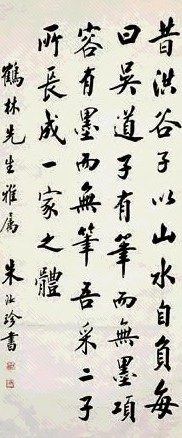 昔洪谷子以山水自負每
曰吳道子有筆而無墨項
容有墨而無筆吾采二子
所長成一家之體
鶴林先生雅属 朱汝珍書